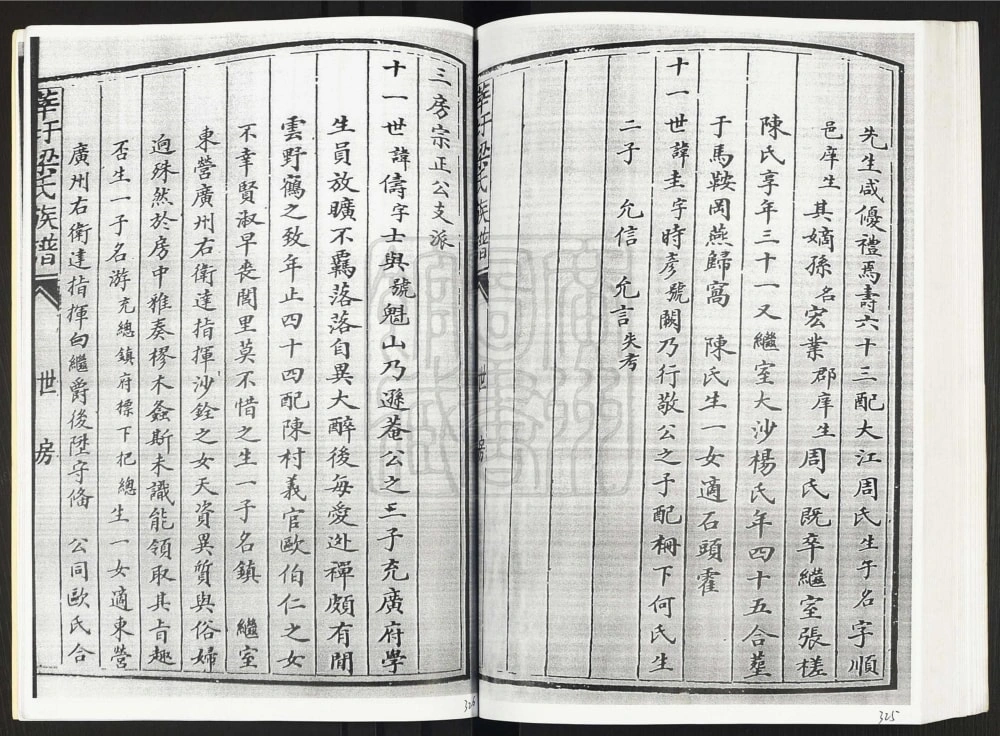 先生咸優禮焉壽六十三配大江周氏生子名字順
邑庠生其嫡孫名宏業郡庠生周氏既卒繼室張槎
陳氏享年三十一又繼室大沙楊氏年四十五合葬
于馬鞍岡燕歸窩 陳氏生一女適石頭霍
十一世諱圭字時彥號闕乃行敬公之子配柵下何氏生
二子 允信 允言失考
莘村梁氏族譜 世 房
325
三房宗正公支派
十一世諱儔字士與號魁山乃遜菴公之三子充廣府學
生員放曠不羈落落自異大醉後每愛逃禪頗有閒
雲野鶴之致年止四十四配陳村義官歐伯仁之女
不幸賢淑早喪閭里莫不惜之生一子名鎮 繼室
東營廣州右衛達指揮沙銓之女天資異質與俗婦
逈殊然於房中雅奏樛木螽斯未識能領取其旨趣
否生一子名游充總鎮府標下把總生一女適東營
廣州右衛達指揮白繼爵後陞守俻 公同歐氏合
莘村梁氏族譜 世 房
326